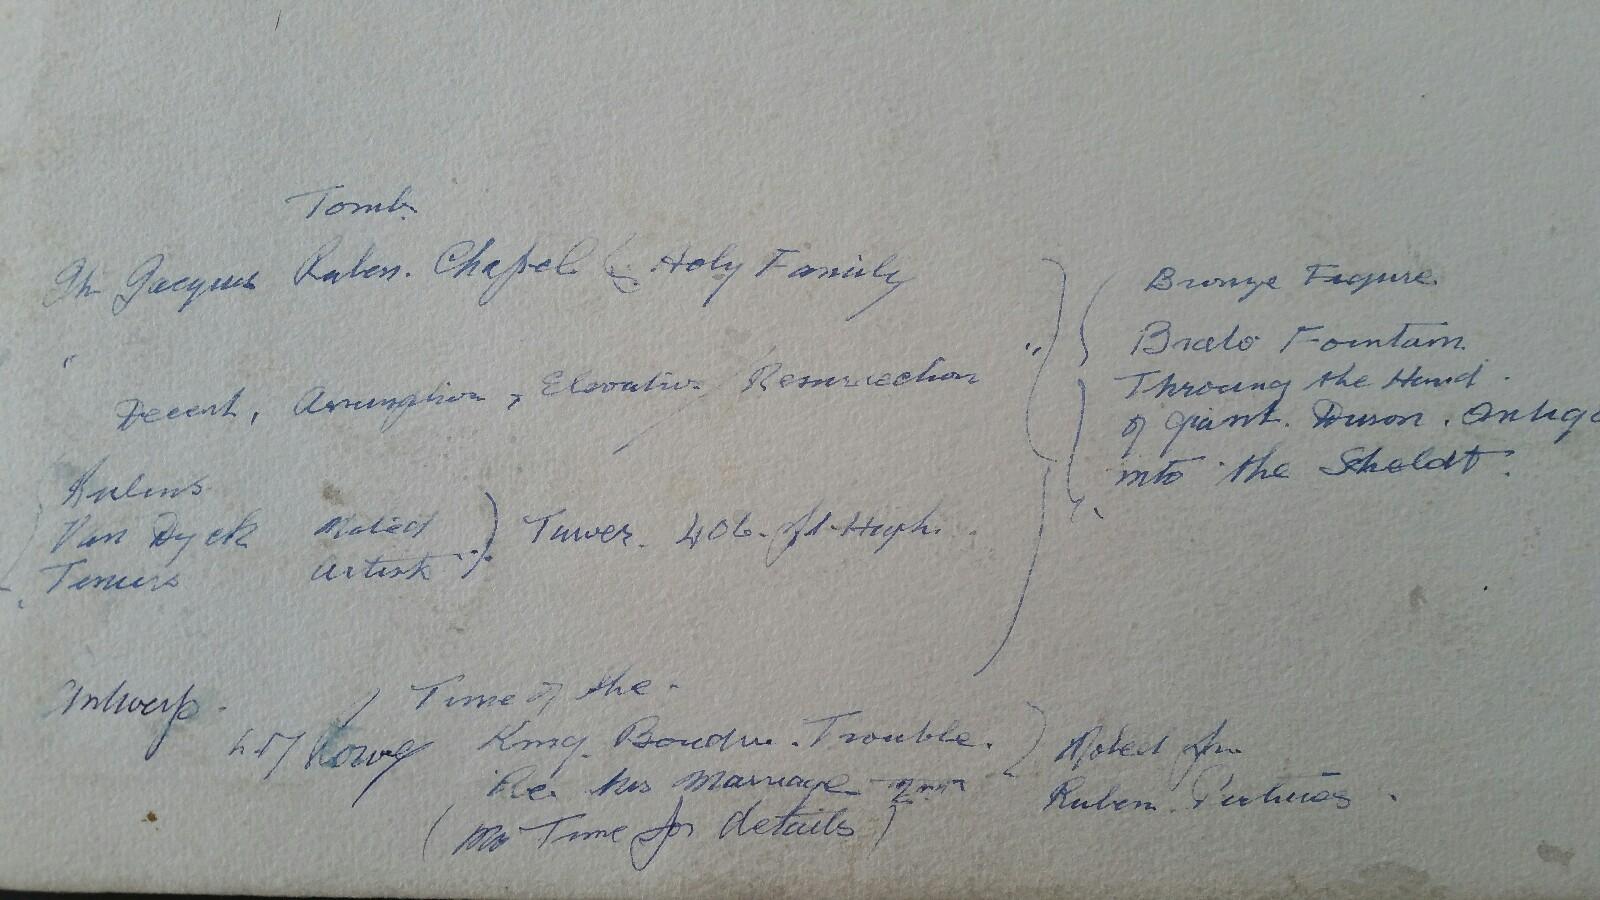 Tomb.
Jacques Ruben. Chapel ( Holy Family
Decent, Assumption, Elevation Resurrection "
Rubens
Van Dyck Noted
Teniers Artist ) Tower. 406. ft. High.
Bronze Figure
Brabo Fountain.
Throwing the Hand.
of giant. Druon. Antigo
into the Scheldt.
Antwerp. / Time of the.
King. Boudin. Trouble.
Re. his Marriage 2nd
(No Time for details)
Noted for
Ruben. Pictures.